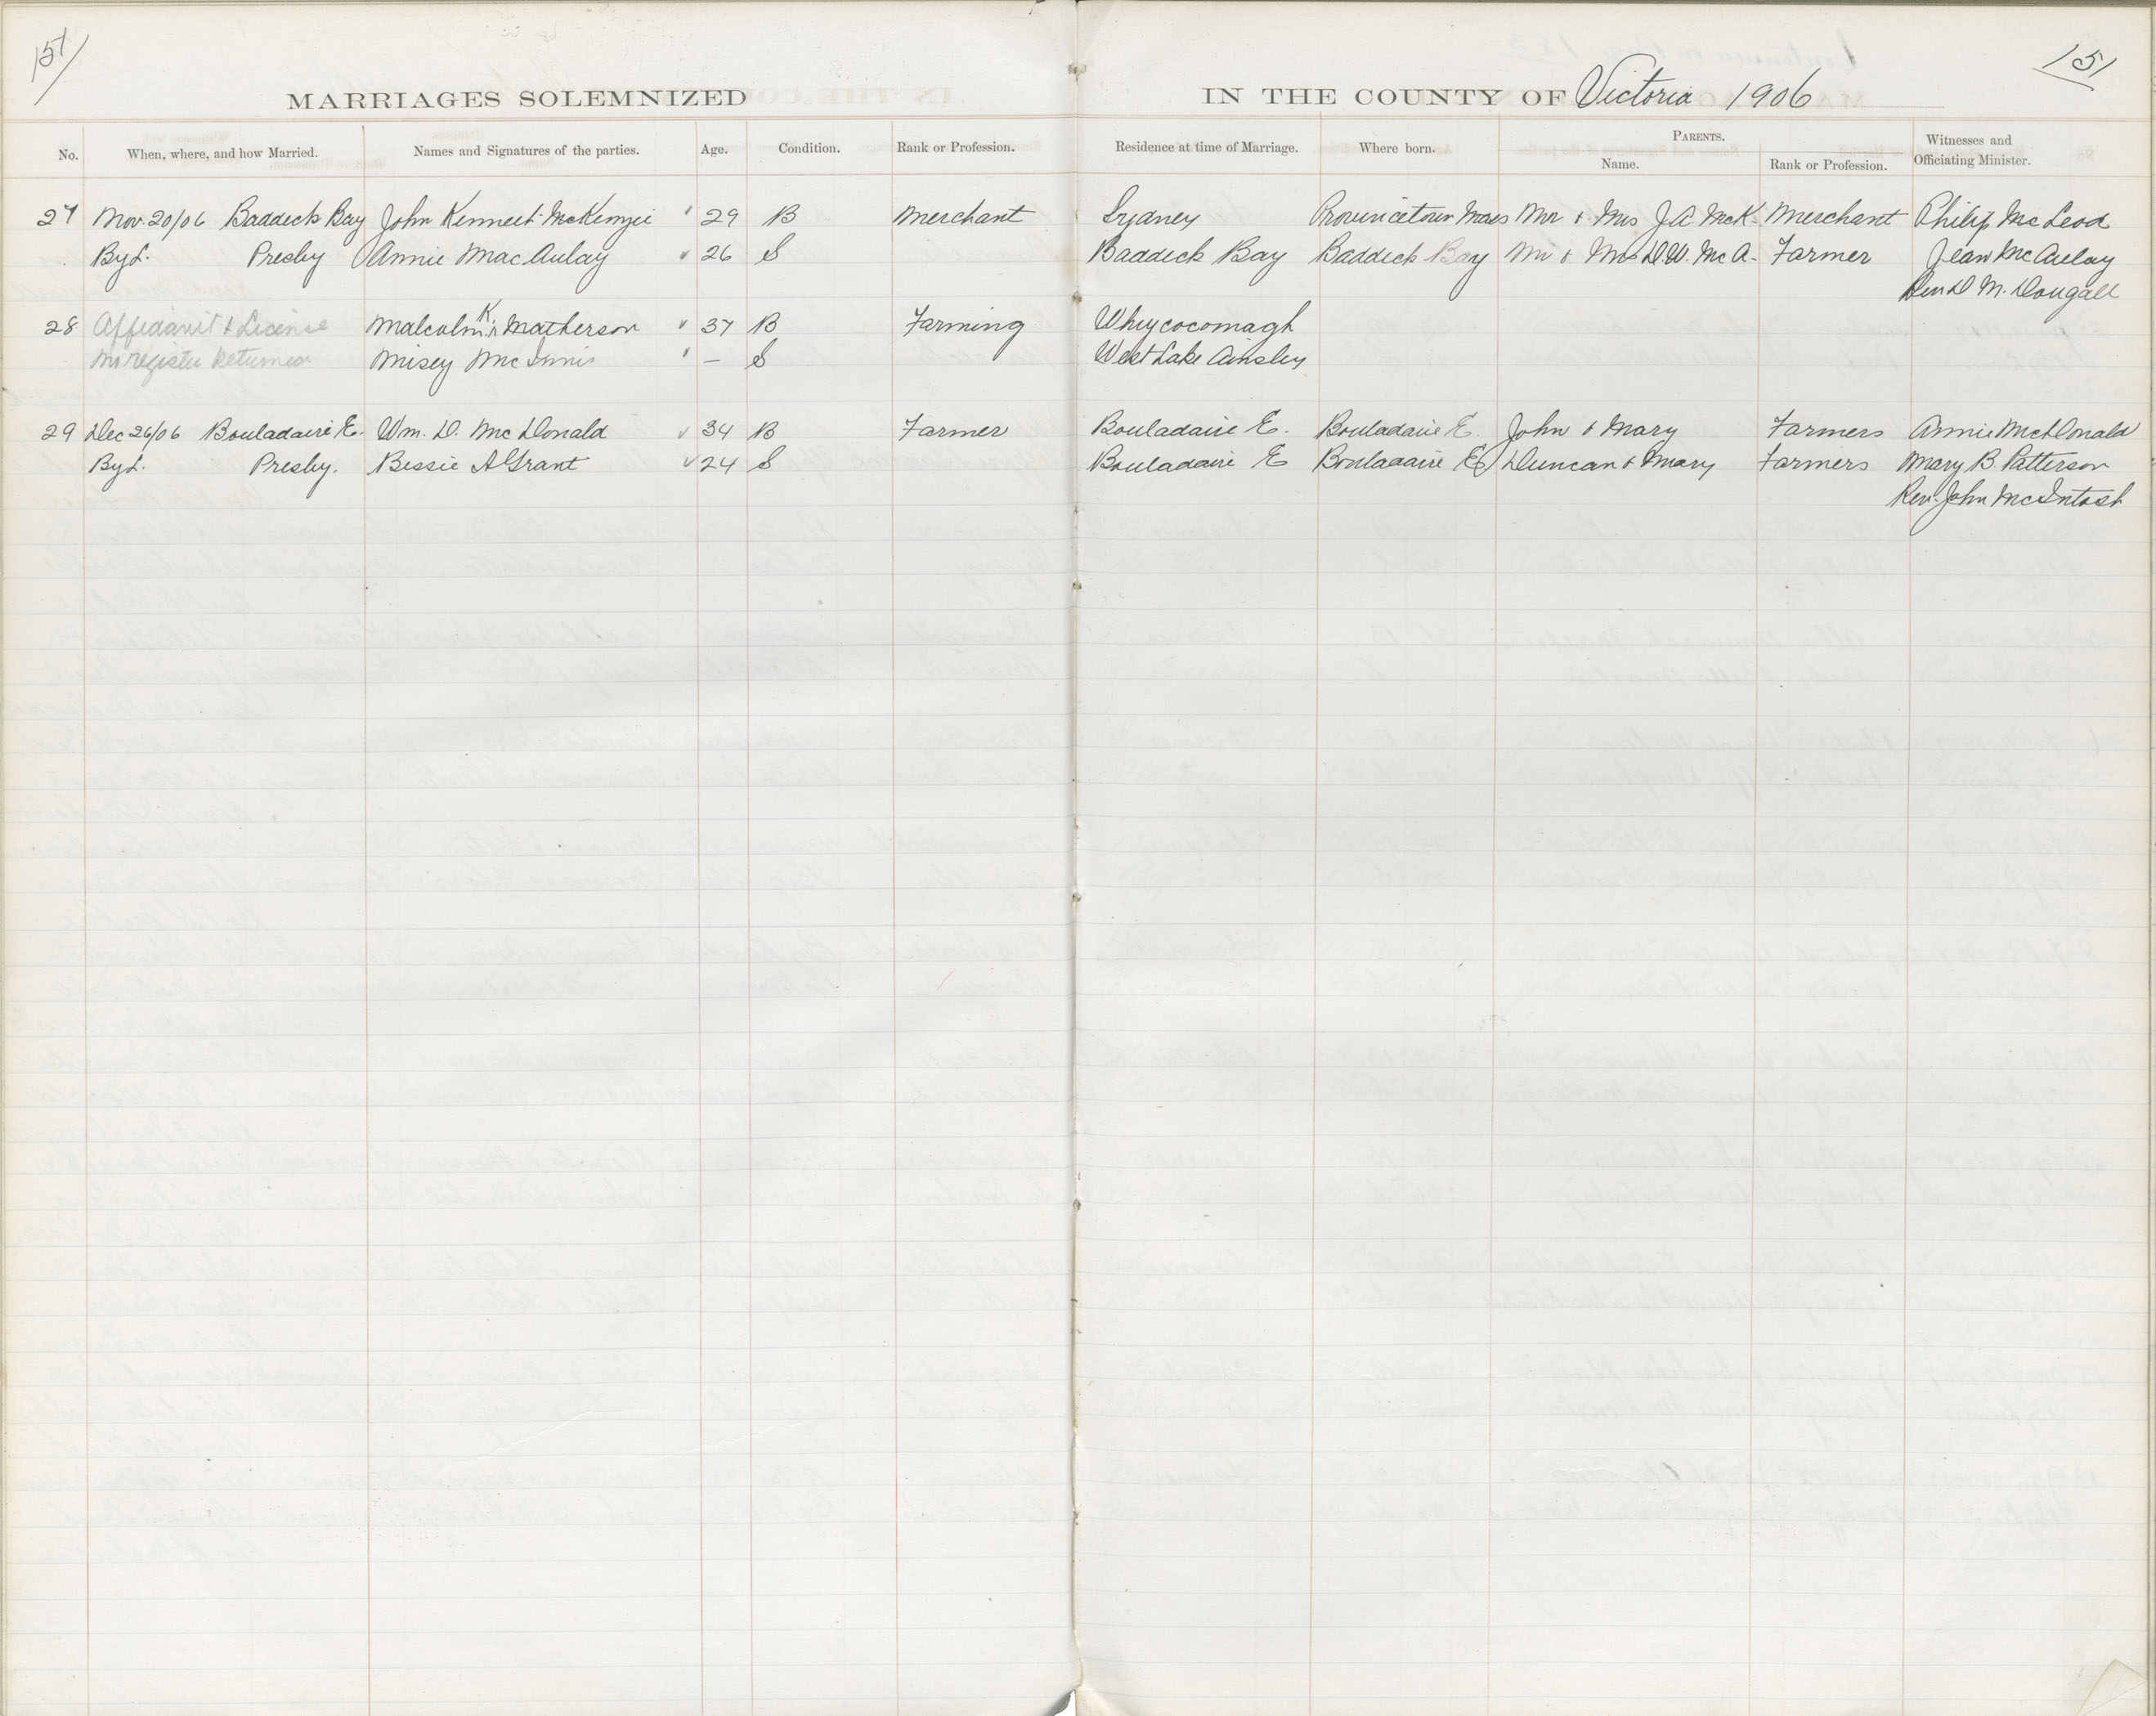 151
151
MARRIAGES SOLEMNIZED IN THE COUNTY OF Victoria 1906
No. When, where, and how Married. Names and Signatures of the parties. Age. Condition. Rank or Profession. Residence at time of Marriage. Where born. PARENTS. Name. Rank or Profession. Witnesses and Officiating Minister.
27 Nov. 20/06 Baddeck Bay John Kenneth McKenzie 29 B Merchant Sydney Provincetown Mass Mr & Mrs J A McK. Merchant Philip McLeod
By L. Presby Annie MacAulay 26 S Baddeck Bay Baddeck Bay Mr & Mrs D.W. McA. Farmer Jean McAulay
Rev D M. Dougall
28 Affidavit & License Malcolm K. Matherson 37 B Farming Whycocomagh
No register Returned Misey McInnis — S West Lake Ainsley
29 Dec 26/06 Bouladarie E. Wm. D. McDonald 34 B Farmer Bouladarie E. Bouladarie E. John & Mary Farmers Annie McDonald
By L. Presby. Bessie A Grant 24 S Bouladarie E Bouladarie E Duncan & Mary Farmers Mary B. Patterson
Rev. John McIntosh